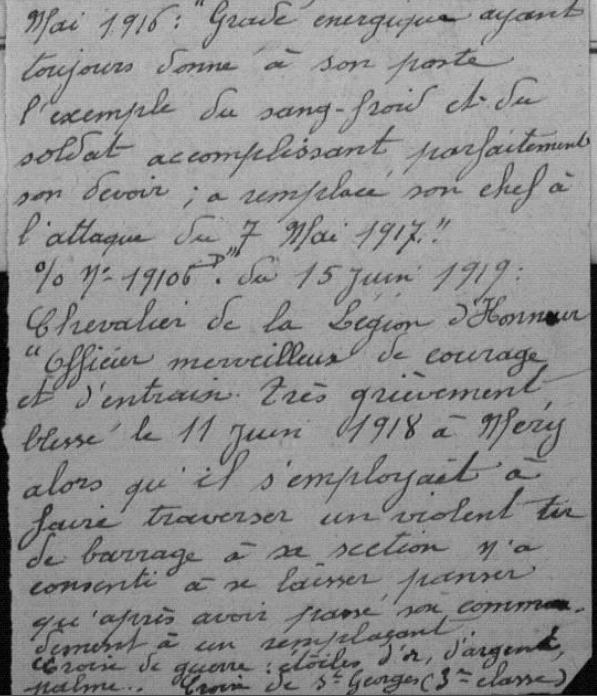 Mai 1916 : "Gradé énergique ayant
toujours donné à son poste
l'exemple du sang-froid et du
soldat accomplissant parfaitement
son devoir ; a remplacé son chef à
l'attaque du 7 Mai 1917."
% No 19106 "D". du 15 Juin 1919 :
Chevalier de la Légion d'Honneur
"Officier merveilleux de courage
et d'entrain. Très grièvement
blessé le 11 Juin 1918 à Méry
alors qu'il s'employait à
faire traverser un violent tir
de barrage à sa section n'a
consenti à se laisser panser
qu'après avoir passé son comman-
dement à un remplaçant"
Croix de guerre : étoiles d'or, d'argent,
palme.. Croix de St Georges (3me classe)